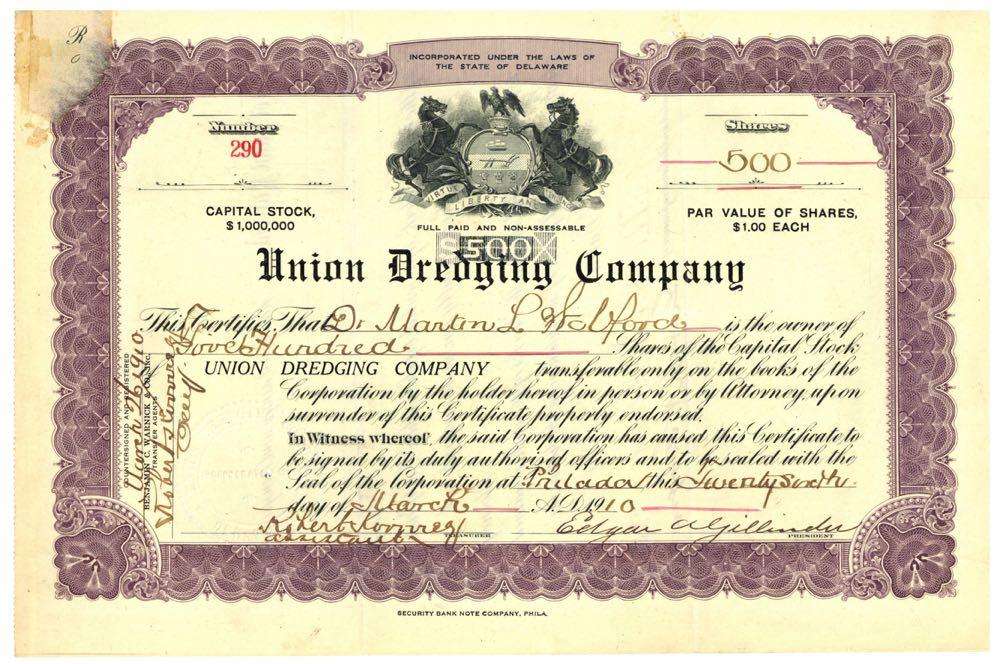 R
INCORPORATED UNDER THE LAWS OF
THE STATE OF DELAWARE
Number
290
Shares
500
VIRTUE LIBERTY AND
CAPITAL STOCK,
$1,000,000
PAR VALUE OF SHARES,
$1.00 EACH
FULL PAID AND NON-ASSESSABLE
$500
Union Dredging Company
This Certifies, That Dr Martin L Wolford is the owner of
Hundred Shares of the Capital Stock
UNION DREDGING COMPANY transferable only on the books of the
Corporation by the holder hereof in person or by Attorney, upon
surrender of this Certificate properly endorsed.
In Witness whereof, the said Corporation has caused this Certificate to
be signed by its duly authorised officers and to be sealed with the
Seal of the Corporation at Philada this Twenty Sixth
day of March A.D. 1910
Robert
assistant TREASURER
Edgar A Gillinder
PRESIDENT
COUNTERSIGNED AND REGISTERED
March 26 1910
BENJAMIN C. WARNICK & CO. INC.
TRANSFER AGENTS
Robert
SECURITY BANK NOTE COMPANY, PHILA.